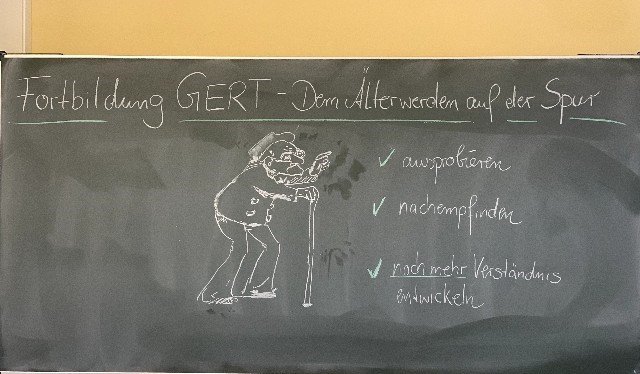 Fortbildung GERT - Dem Älterwerden auf der Spur
✓ ausprobieren
✓ nachempfinden
✓ noch mehr Verständnis
entwickeln